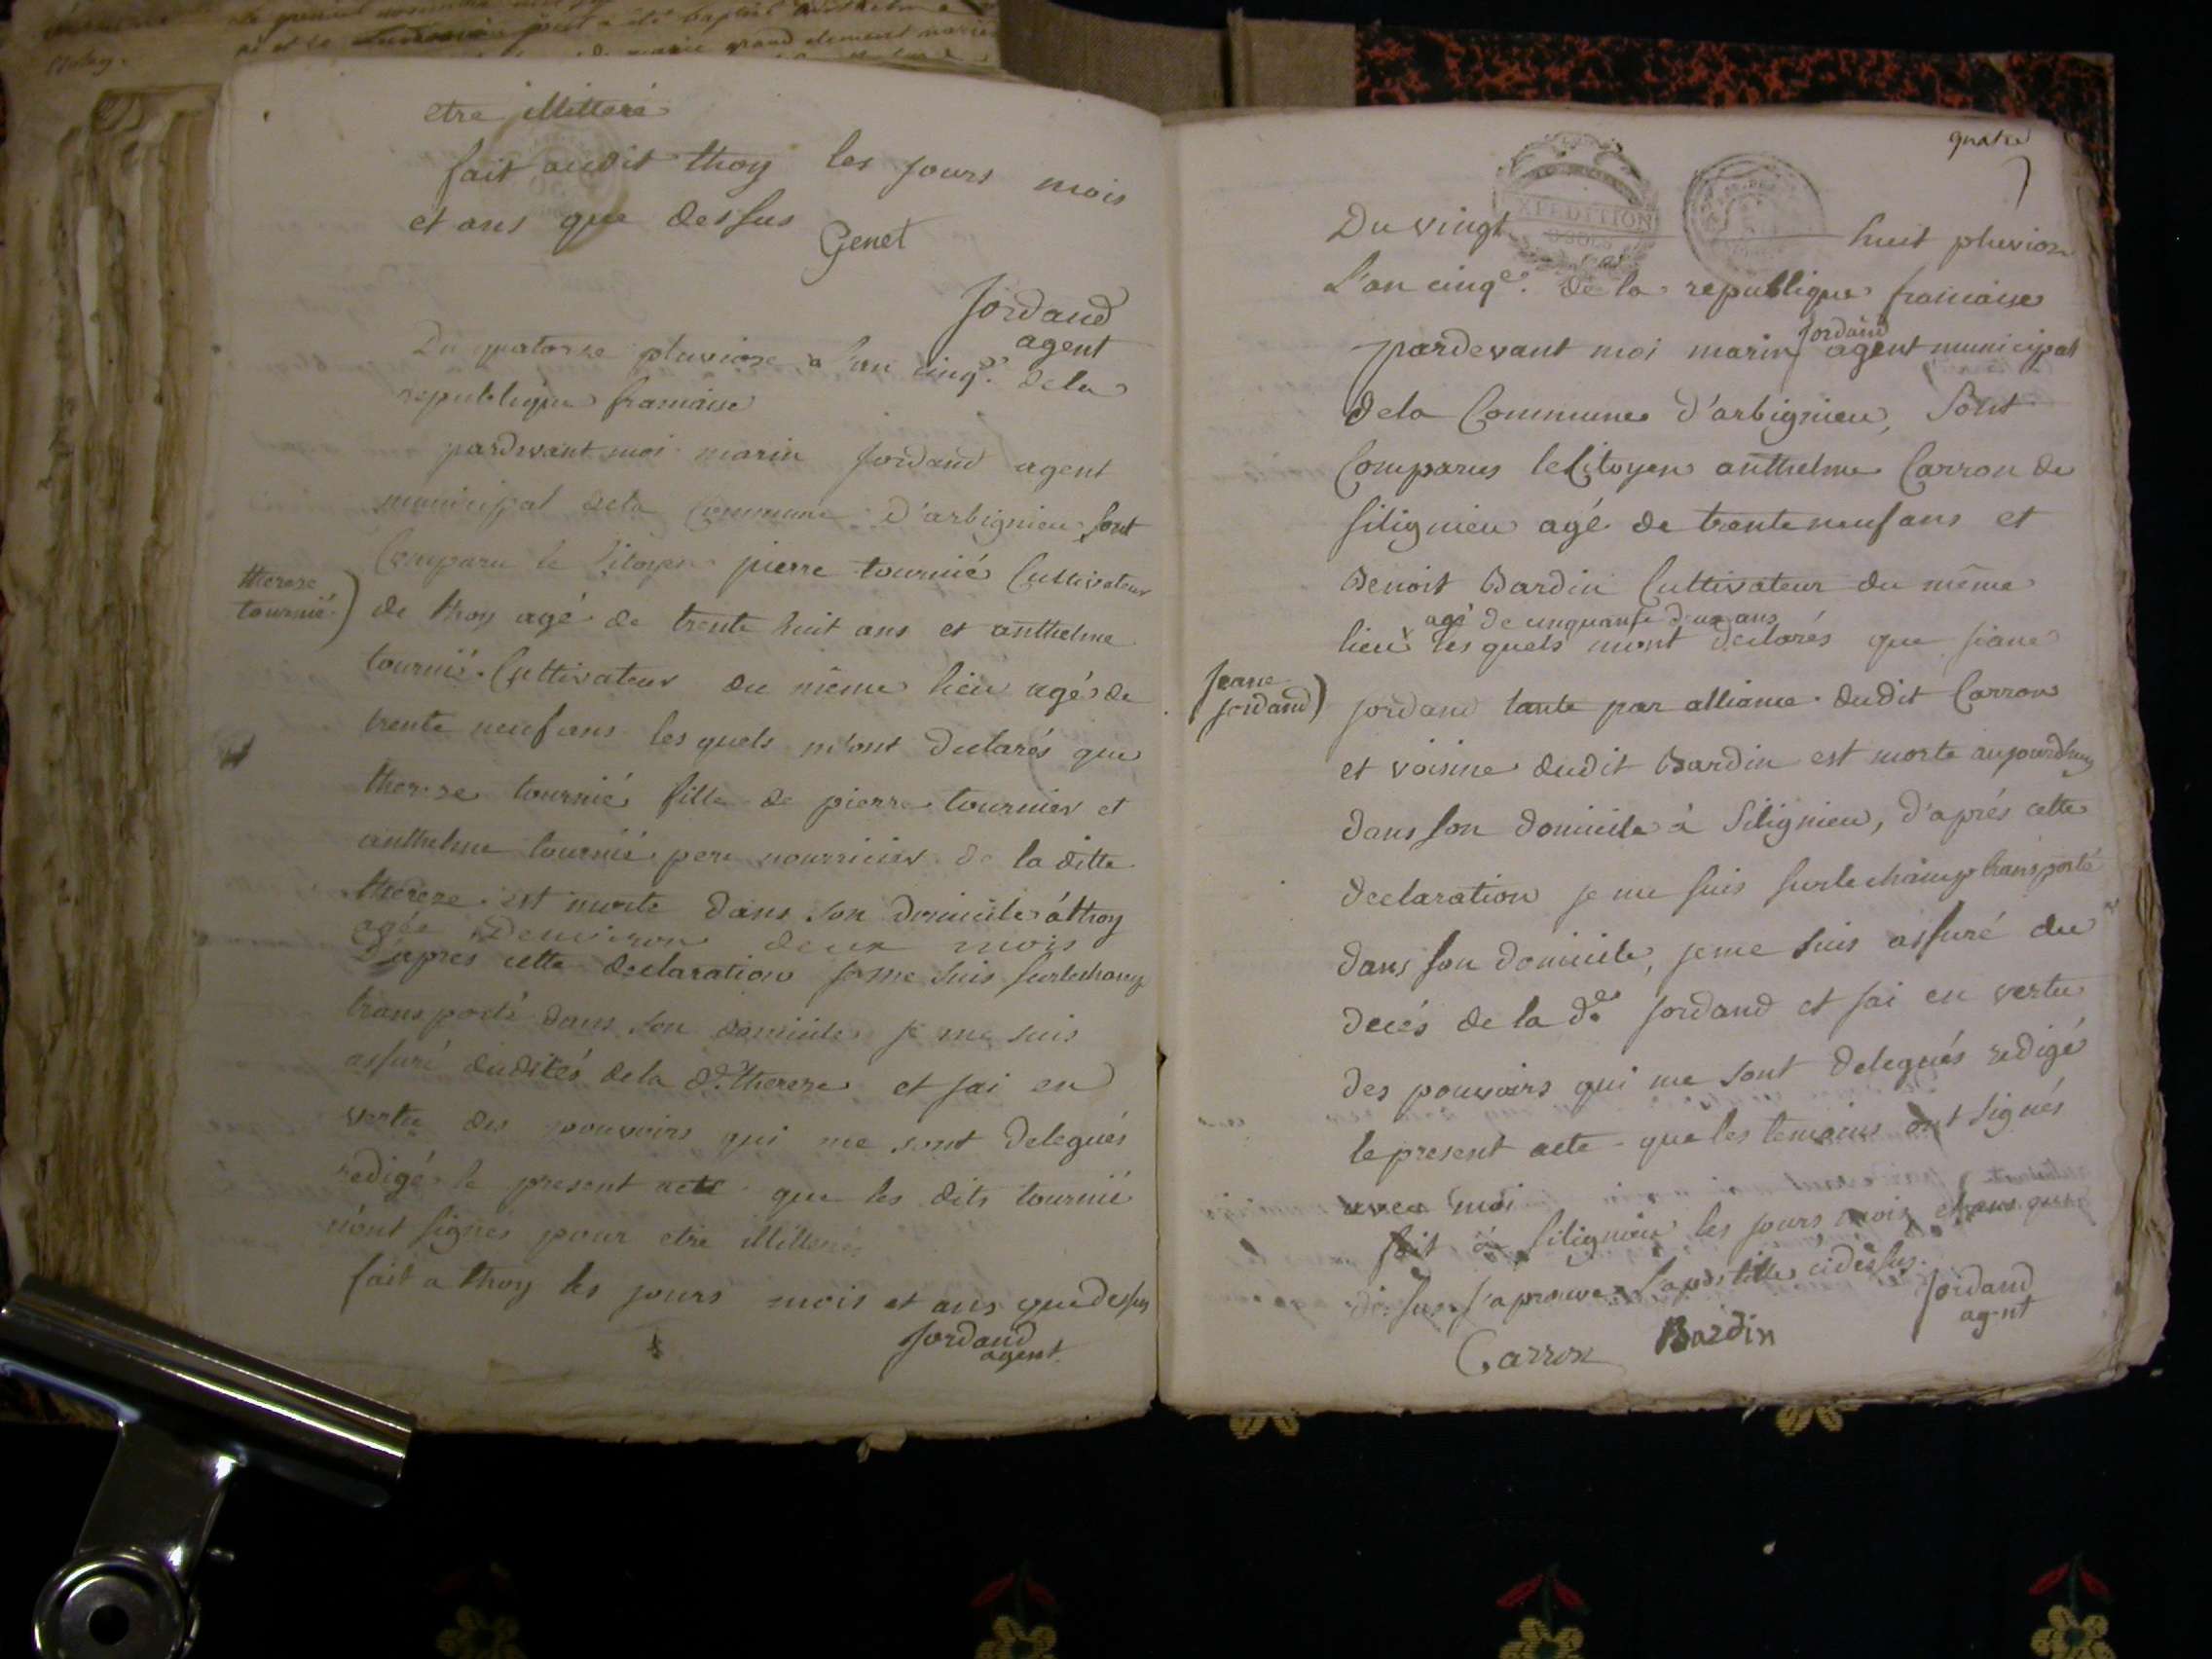 etre illitteré
fait audit thoy les jours mois
et ans que dessus
Genet
Jordand
agent
Du quatorse pluviose a l'an cinq.e dela
republique francaise
pardevant moi marin Jordand agent
municipal dela Commune d'arbignieu sont
Comparu le Citoyen pierre tournié Cultivateur
therese
tournié
de thoy agé de trente huit ans et anthelme
tournié Cultivateur du même lieu agés de
trente neuf ans les quels m'ont declarés que
therese tournié fille de pierre tournier et
anthelme tournié pere nourricier de la ditte
therese est morte dans son domicile á thoy
agée d'environ deux mois
D'apres cette declaration je me suis surlechamp
transporté dans son domicile je me suis
assuré dudécés dela d.e therese et jai en
vertu des pouvoirs qui me sont delegués
redigé le present acte que les dits tournié
n'ont signés pour etre illitterés
fait a thoy les jours mois et ans quedessus
Jordand
agent
quatre
EXPEDITION
Du vingt huit pluviose
L'an cinq.e de la republique francaise
Jordand
pardevant moi marin agent municipal
dela Commune d'arbignieu, sont
Comparus leCitoyen anthelme Carron de
silignieu agé de trente neuf ans et
Benoit Bardin Cultivateur du même
agé de cinquante deux ans
lieu les quels mont declarés que jeane
Jeane
Jordand
jordand tante par alliance dudit Carron
et voisine dudit Bardin est morte aujourdhuy
dans son domicile à Silignieu, d'aprés cette
declaration je me suis surlechamp transporté
dans son domicile, jeme suis assuré du
decés de la d.e Jordand et jai en vertu
des pouvoirs qui me sont delegués redigé
le present acte que les temoins ont signés
avec moi
fait à silignieu les jours mois et ans que
dessus j'aprouve l'apostille cidessus.
Jordand
agent
Carron Bardin